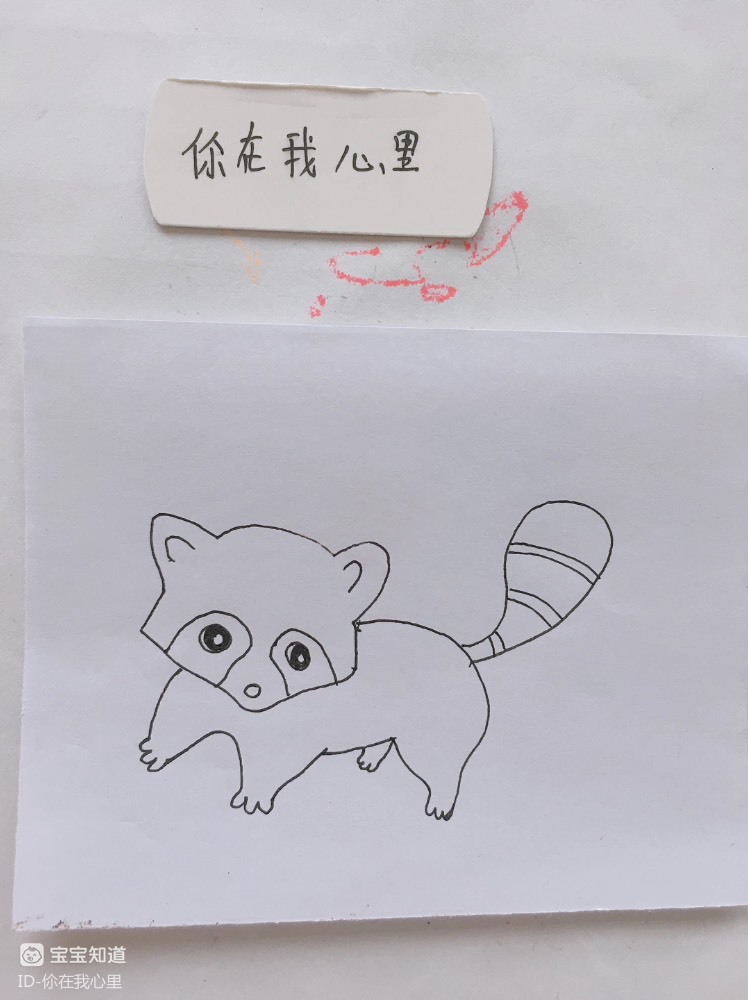 你在我心里
宝宝知道
ID-你在我心里